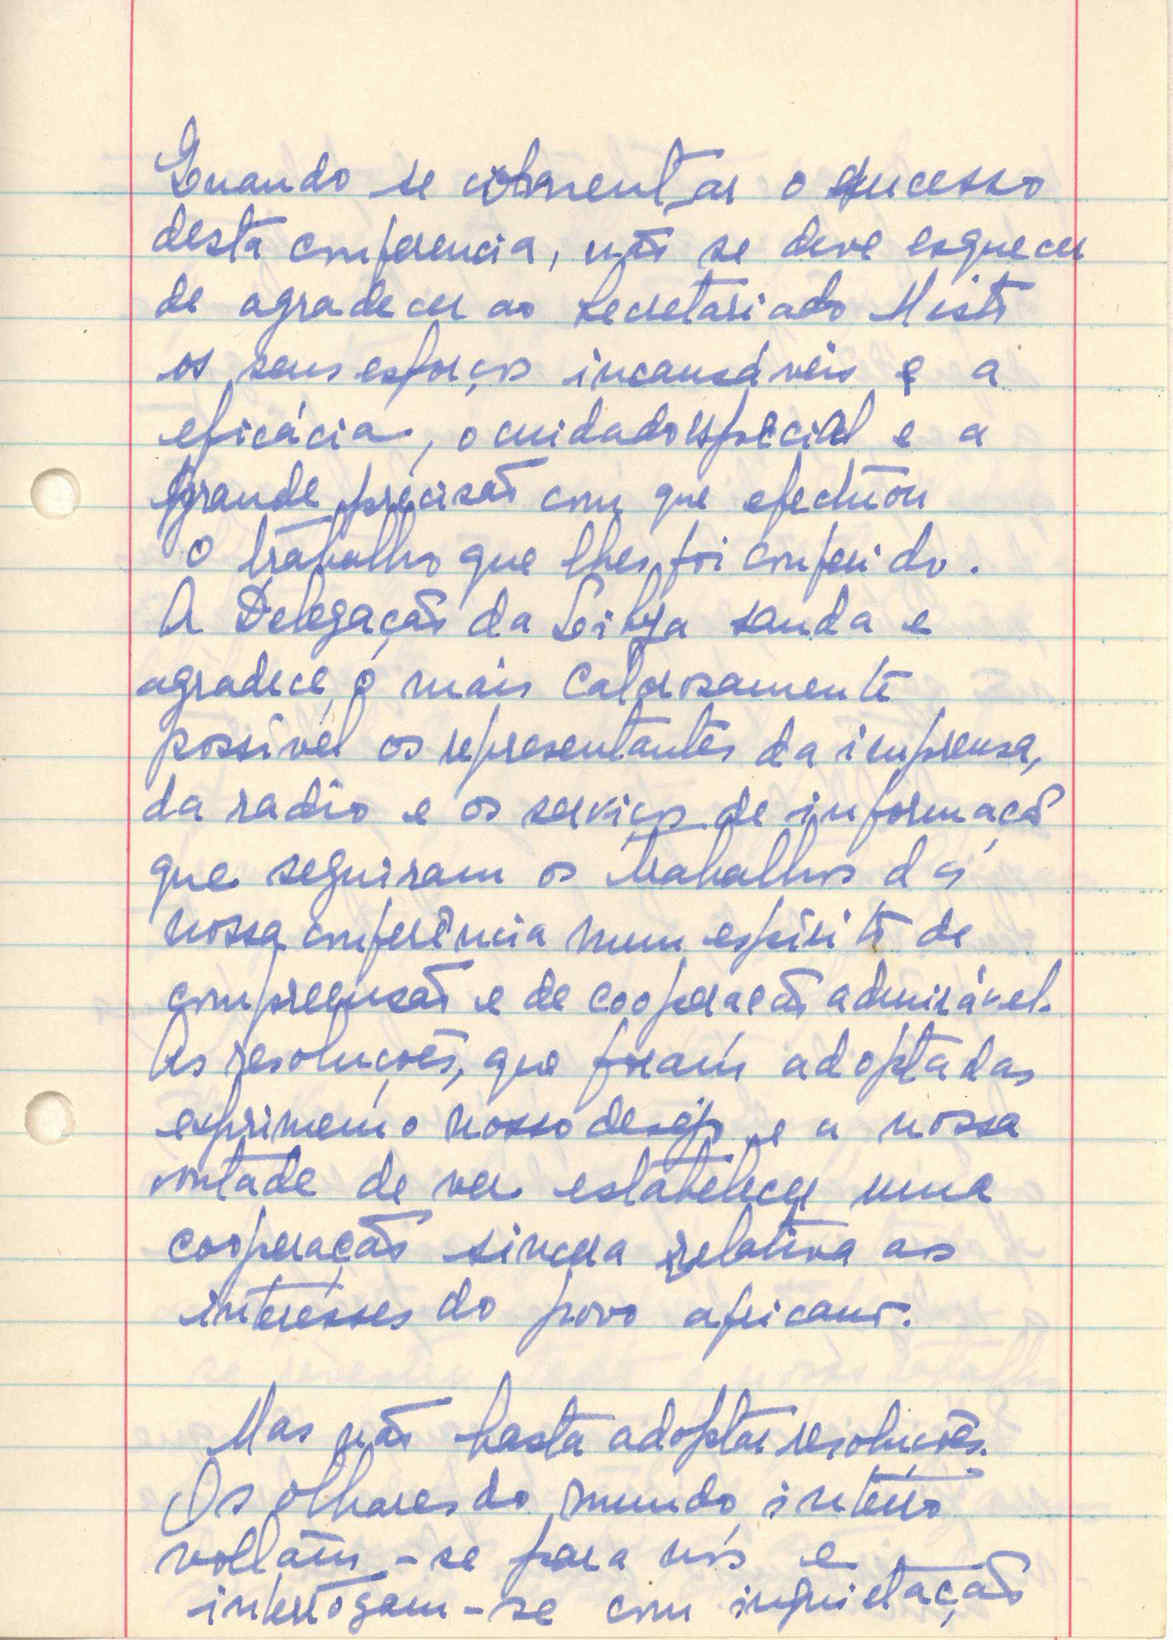 Quando se comentar o sucesso
desta conferencia, não se deve esquecer
de agradecer ao Secretariado Misto
os seus esforços incansáveis e a
eficácia, o cuidado especial e a
grande precisão com que efectuou
o trabalho que lhes foi conferido.
A Delegação da Libya sauda e
agradece, o mais calorosamente
possivel os representantes da imprensa,
da radio e os serviços de informação
que seguiram os trabalhos da
nossa conferência num espirito de
compreensão e de cooperação admirável.
As resoluções, que foram adoptadas
esprimem o nosso desejo e a nossa
vontade de ver estabelecer uma
cooperação sincera relativa aos
interesses do povo africano.
Mas não basta adoptar resoluções.
Os olhares do mundo inteiro
voltam-se para nós e
interrogam-se com inquietação